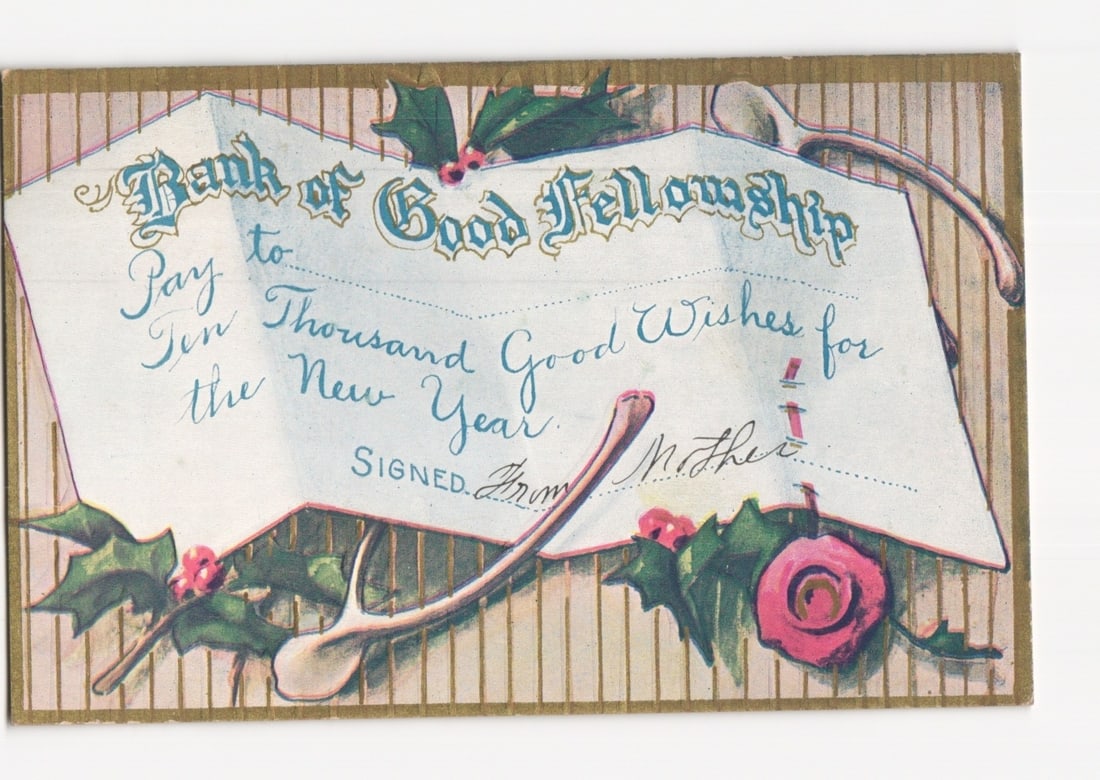 Bank of Good Fellowship
Pay to
Ten Thousand Good Wishes for
the New Year.
SIGNED From Mother